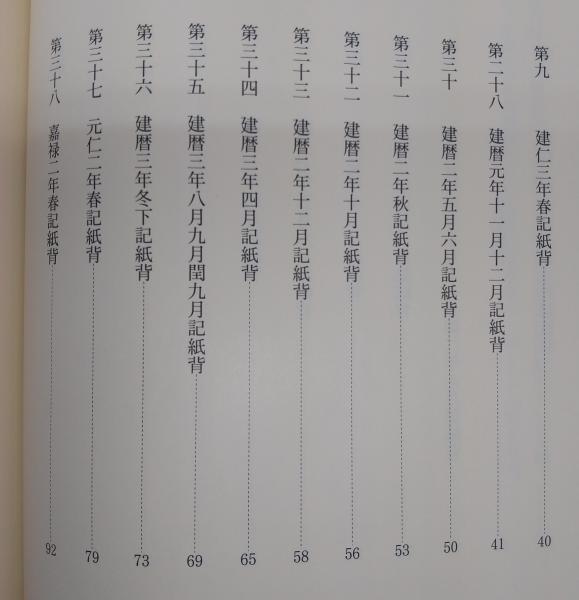 第九 建仁三年春記紙背 40
第二十八 建暦元年十一月十二月記紙背 41
第三十 建暦二年五月六月記紙背 50
第三十一 建暦二年秋記紙背 53
第三十二 建暦二年十月記紙背 56
第三十三 建暦二年十二月記紙背 58
第三十四 建暦三年四月記紙背 65
第三十五 建暦三年八月九月閏九月記紙背 69
第三十六 建暦三年冬下記紙背 73
第三十七 元仁二年春記紙背 79
第三十八 嘉禄二年春記紙背 92